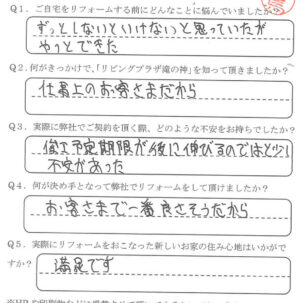 Q1．ご自宅をリフォームする前にどんなことに悩んでいましたか？
ずっとしないといけないと思っていたが
やっとできた
Q2．何がきっかけで、「リビングプラザ滝の神」を知って頂きましたか？
仕事上のお客さまだから
Q3．実際に弊社でご契約を頂く際、どのような不安をお持ちでしたか？
竣工予定期限が後に伸びるのではと少し
不安があった
Q4．何が決め手となって弊社でリフォームをして頂けましたか？
お客さまで一番良さそうだから
Q5．実際にリフォームをおこなった新しいお家の住み心地はいかがで
すか？
満足です